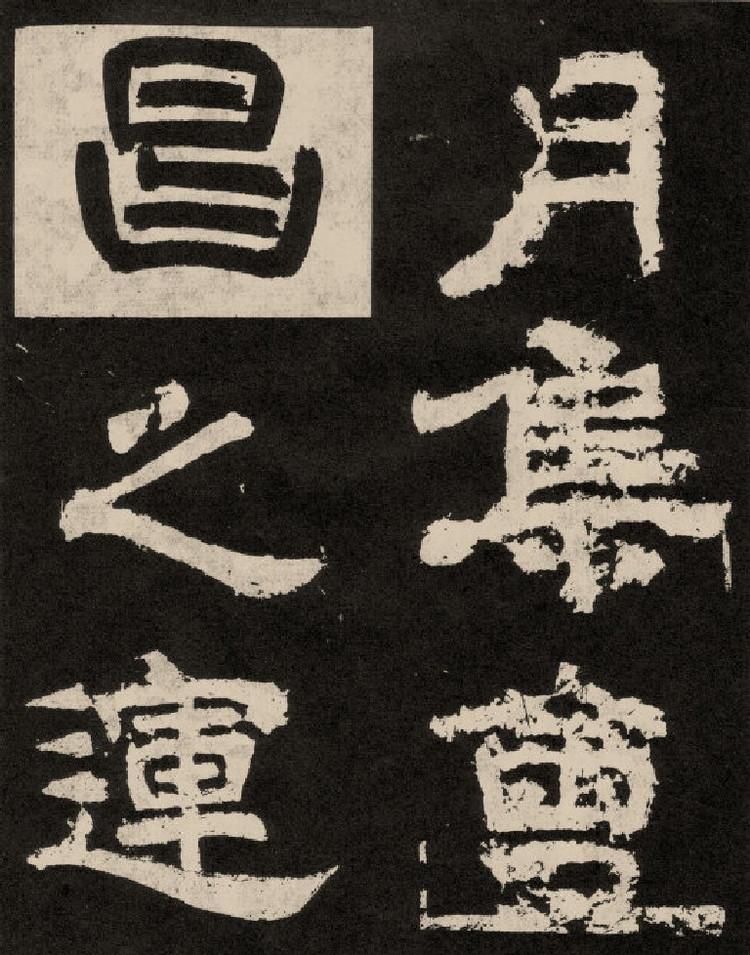 月集
昌之運